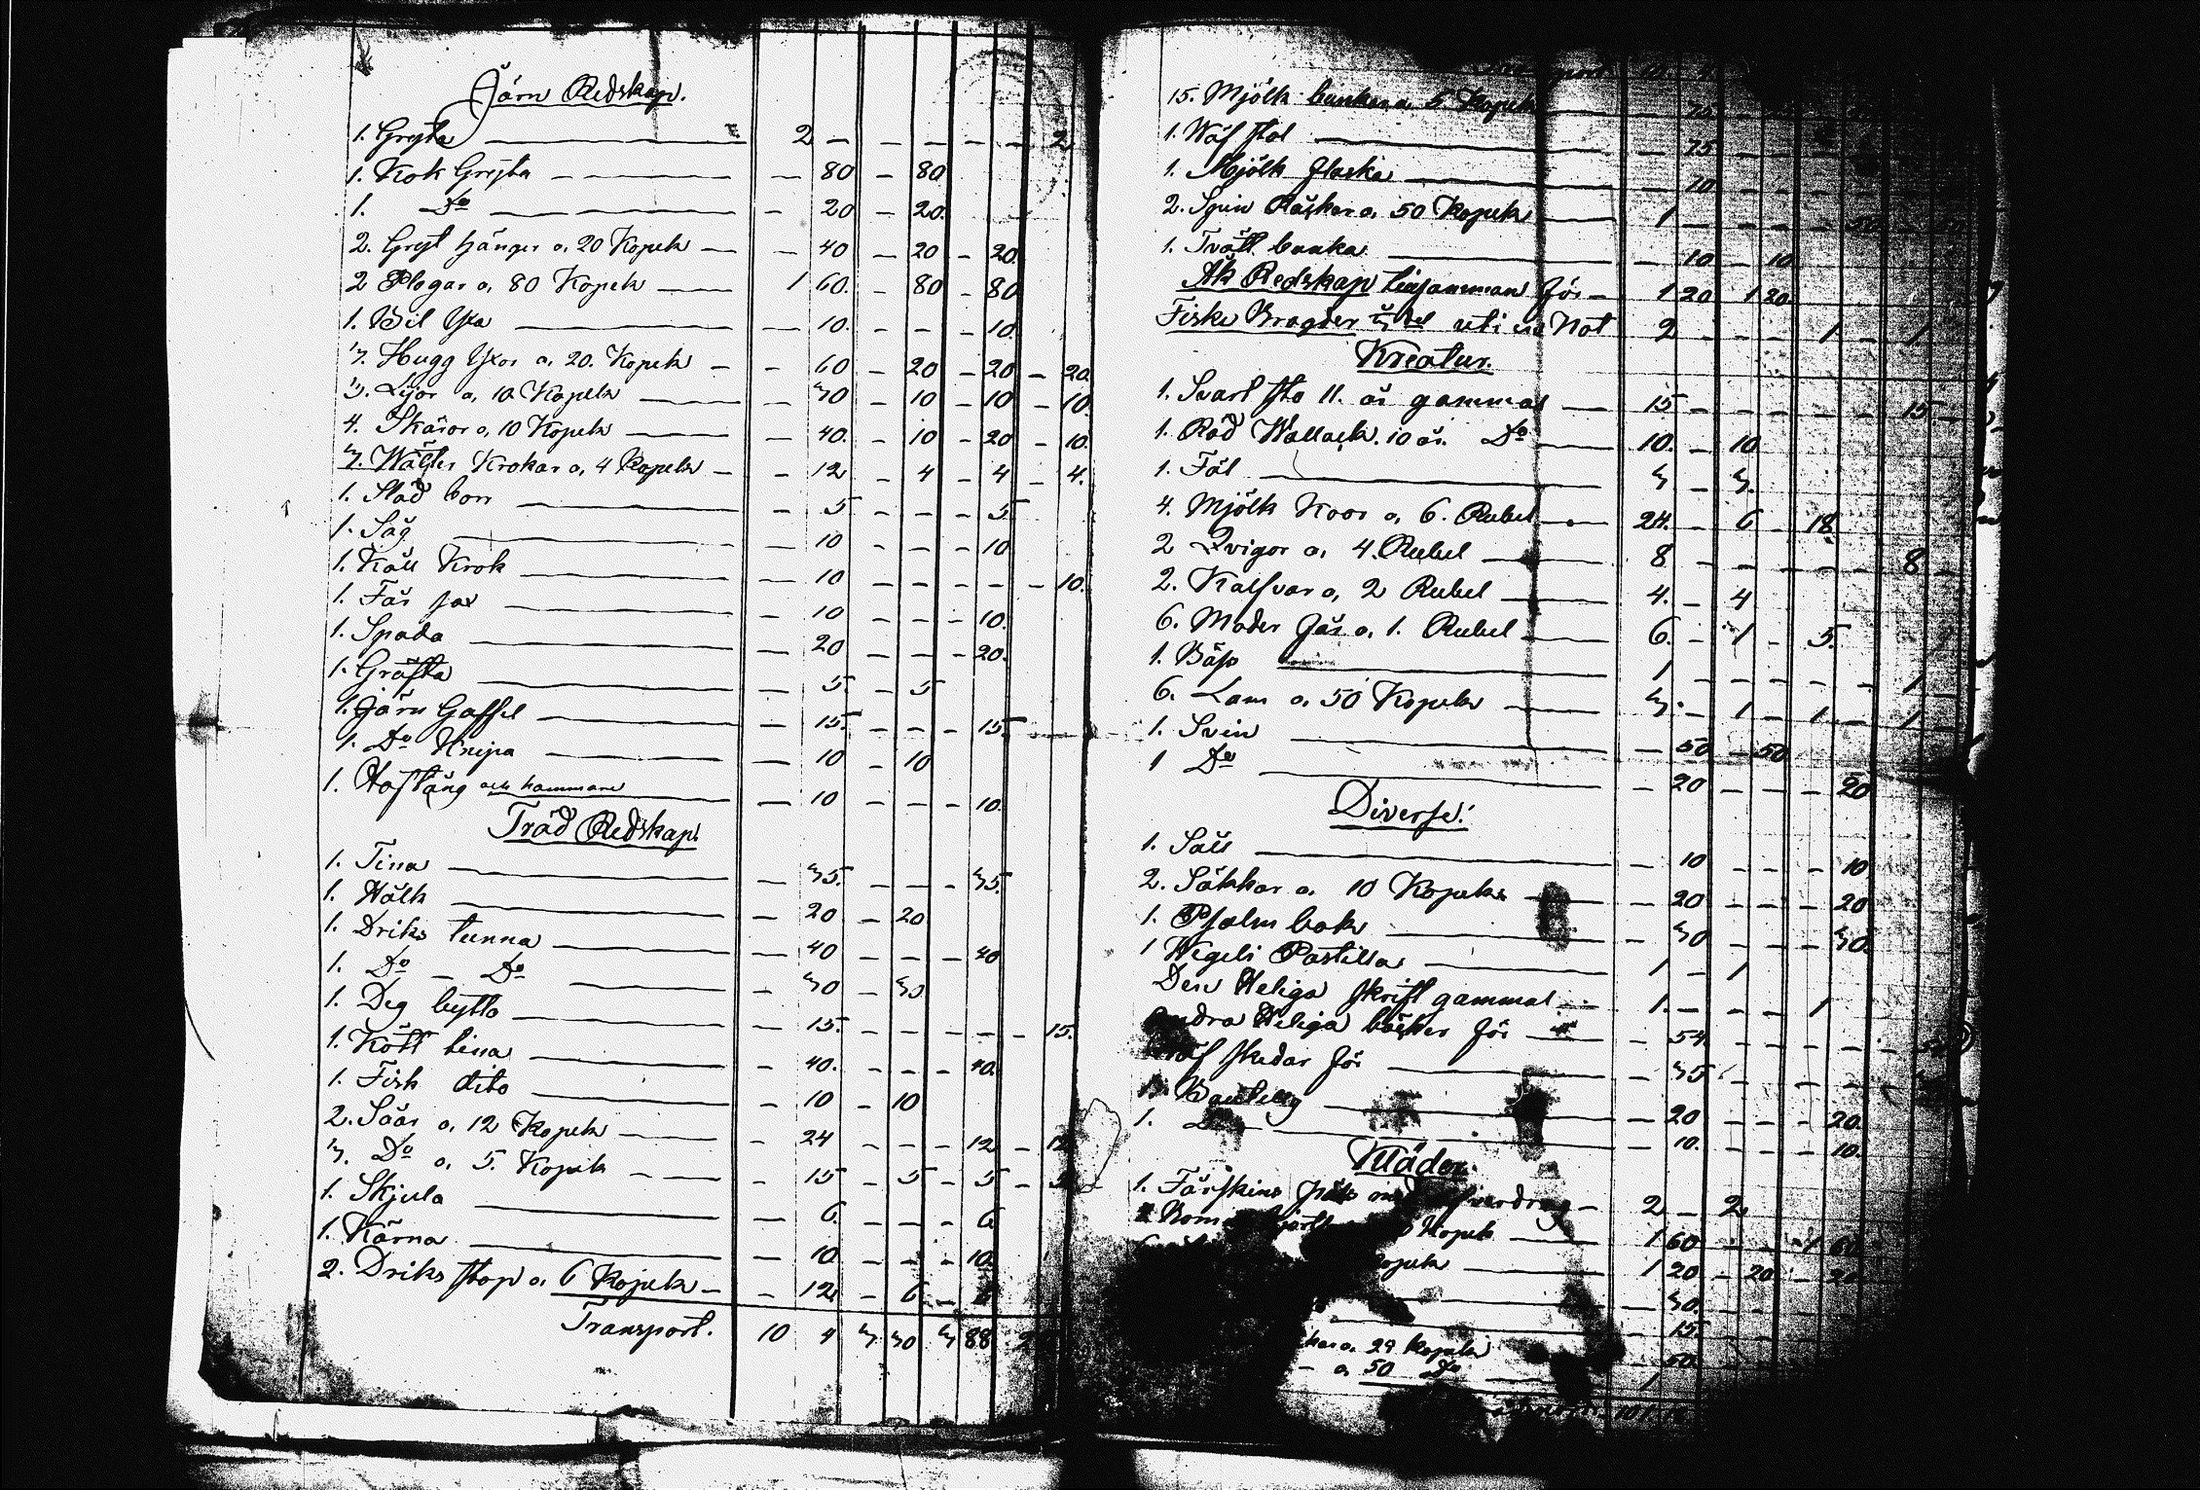 Järn Redskap.
1. Gryta — 2 — — — — — 2
1. Kok Gryta — — 80 — 80
1. Do — — 20 — 20.
2. Gryt hänger a, 20 Kopek — — 40 — 20 — 20.
2 Plogar a, 80 Kopek — 1 60. — 80 — 80
1. Bil Yxa — — 10. — — — 10.
3. Hugg Yxor a, 20. Kopek — — 60 — 20 — 20 — 20
3. Lijor a, 10 Kopek — — 30 — 10 — 10 — 10.
4. Skäror a, 10 Kopek — — 40. — 10 — 20 — 10.
3. Krokar a, 4 Kopek — — 12 — 4 — 4 — 4.
1. Städ borr — — 5 — — — 5.
1. Såg — — 10 — — — 10
1. Käll Krok — — 10 — — — — — 10.
1. Får sax — — 10 — — — 10.
1. Spada — — 20 — — — 20.
1. Gräfta — — 5. — 5
1. Järn Gaffel — — 15. — — — 15.
1. Do Knipa — — 10 — 10
1. Hoftång och hammare — — 10 — — — 10.
Träd Redskap.
1. Tina — — 35. — — — 35.
1. Hålk — — 20 — 20
1. Driks tunna — — 40 — — — 40
1. Do — Do — — 30 — 30
1. Deg bytta — — 15. — — — — — 15.
1. Kött tina — — 40. — — — 40.
1. Fisk dito — — 10 — 10
2. Såår a, 12 Kopek — — 24 — — — 12 — 12
3. Do a, 5. Kopek — — 15 — 5 — 5 — 5
1. Skjula — — 6. — — — 6
1. Kärna — — 10. — — — 10.
2. Driks stop a, 6 Kopek — — 12. — 6 — 6
Transport. 10 4 3 30 3 88 2
15. Mjölk bunkar a, 5 Kopek — — 75
1. Wäf stol — — 75
1. Mjölk flaska — — 10
2. Spin Råckar a, 50 Kopek — 1 — — — — 50 — 50
1. Tvätt bunka — — 10 — 10
Åk Redskap tillsamman för — 1 20 1 20
Fiske Bragder uti en Not 2 — — — 1 — 1
Kreatur.
1. Svart sto 11. år gammal — 15 — — — — — 15 —
1. Röd Wallack. 10 år. Do — 10. — 10
1. Föl — 3 — 3.
4. Mjölk Koor a, 6. Rubel — 24. — 6 — 18
2 Qvigor a, 4. Rubel — 8 — — — — — 8 —
2. Kalfvar a, 2 Rubel — 4. — 4
6. Moder får a, 1. Rubel — 6. — 1 — 5.
1. Bäss — 1 — — — — — 1
6. Lam a, 50 Kopek — 3. — 1 — 1 — 1
1. Svin — — 50 — 50
1 Do — — 20 — — — 20
Diverse.
1. Såll — — 10 — — — 10
2. Säkkar a, 10 Kopek — — 20 — — — 20
1. Psalm bok — — 30 — — — 30.
1 Wegeli Postilla — 1 — 1
Den Heliga skrift gammal — 1. — — — 1
Andra Heliga böcker för — — 54 — — — — —
Wäf skedar för — — 35 — — — — —
1. Boutellg — — 20 — — — 20.
1. — — 10. — — — 10.
Kläder.
1. Fårskins päls med — 2 — 2
Kopek — 1 60 — — 1 60
Kopek — 1 20 — 20 — 20
— 30.
— 15.
a, 29 Kopek 50.
— a, 50 Do 1